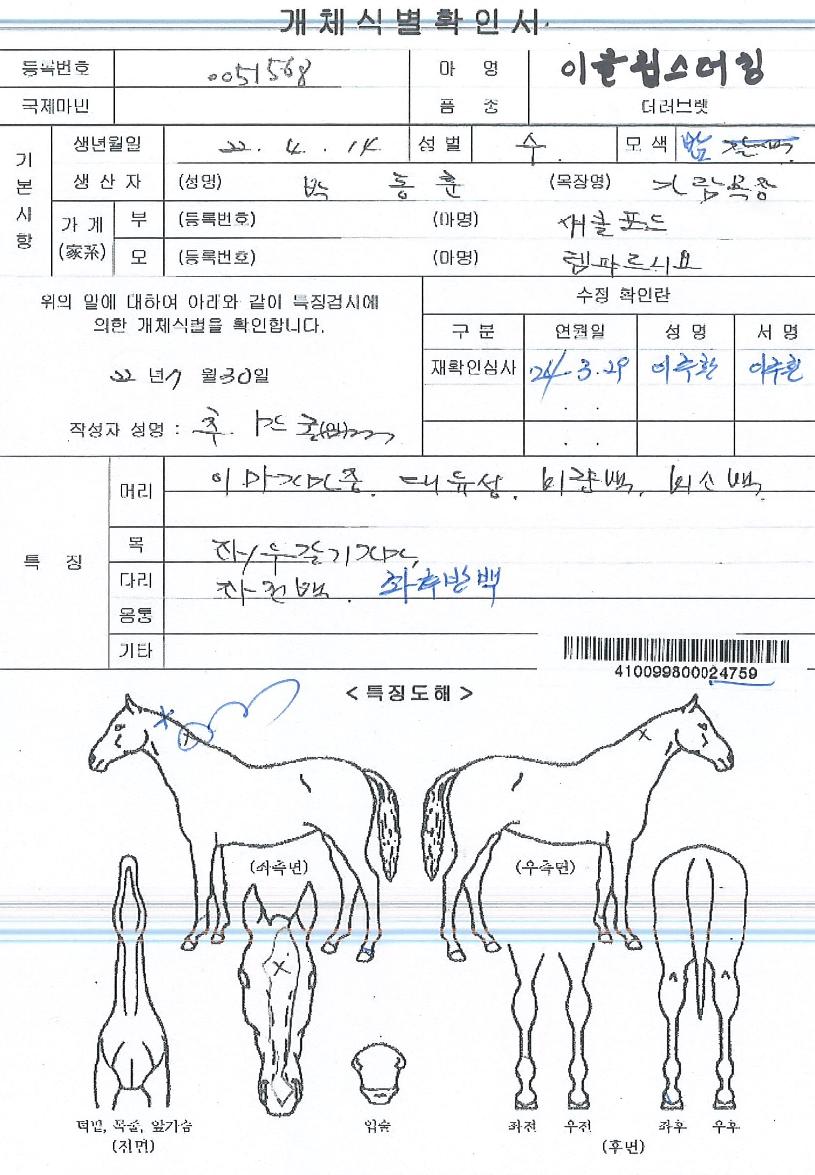 개체식별확인서
등록번호 0051568 마 명 이클립스더킹
국제마번 품 종 더러브렛
기본사항 생년월일 22. 4. 14 성 별 수. 모 색 밤
생 산 자 (성명) 박 동 훈 (목장명)
가 계 (家系) 부 (등록번호) (마명) 섀클포드
모 (등록번호) (마명)
위의 말에 대하여 아래와 같이 특징검사에
의한 개체식별을 확인합니다.
22 년 7 월 30 일
작성자 성명 :
수정 확인란
구 분 연월일 성 명 서 명
재확인심사 24. 3. 29 이주환 이주환
특 징
머리 이마가마중. 대유성. 비량백. 비신백.
목 좌/우갈기가마,
다리 좌전백. 좌후반백
몸통
기타
410099800024759
< 특징도해 >
(좌측면) (우측면)
턱밑, 목줄, 앞가슴
(전면)
입술
좌전 우전 좌후 우후
(후면)